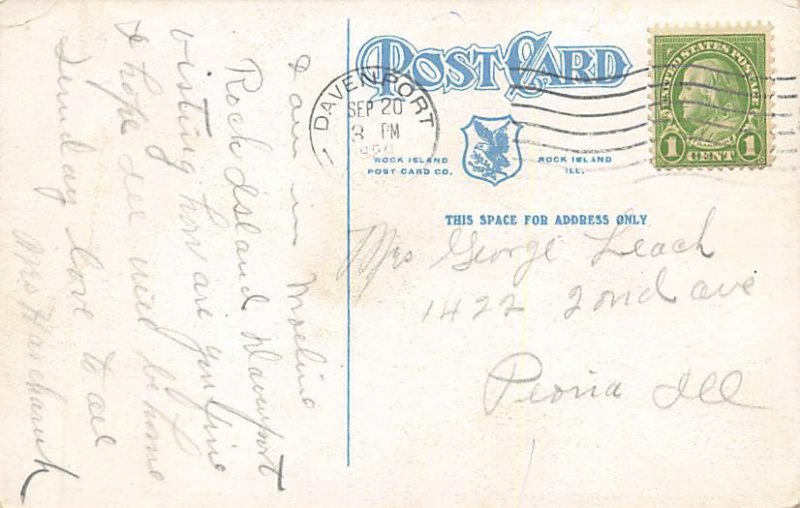 POST CARD
DAVENPORT
SEP 20
3 PM
UNITED STATES POSTAGE
FRANKLIN
1 CENT 1
ROCK ISLAND
POST CARD CO.
ROCK ISLAND
ILL.
THIS SPACE FOR ADDRESS ONLY
Mrs George Leach
1422 2ond ave
Peoria Ill
I am in Moline
Rock Island Davenport
visting how are you fine
I hope see will be home
Sunday love to all
Mrs